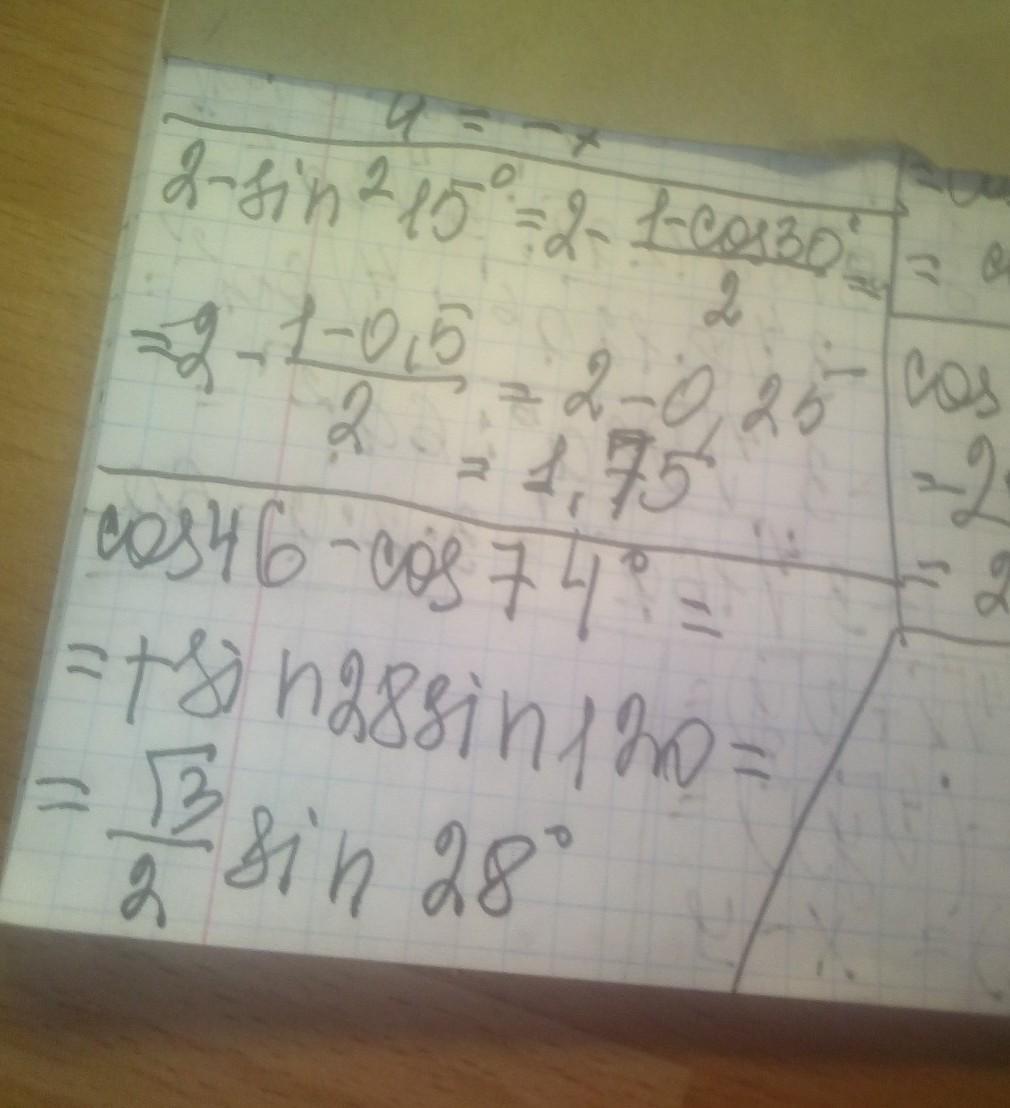 y = -x
2-sin²15° = 2 - (1-cos30°)/2 =
= 2 - (1-0,5)/2 = 2-0,25 -
= 1,75
cos46 - cos74° =
= + sin28sin120 =
= √3/2 sin 28°
cos
= 2
= 2